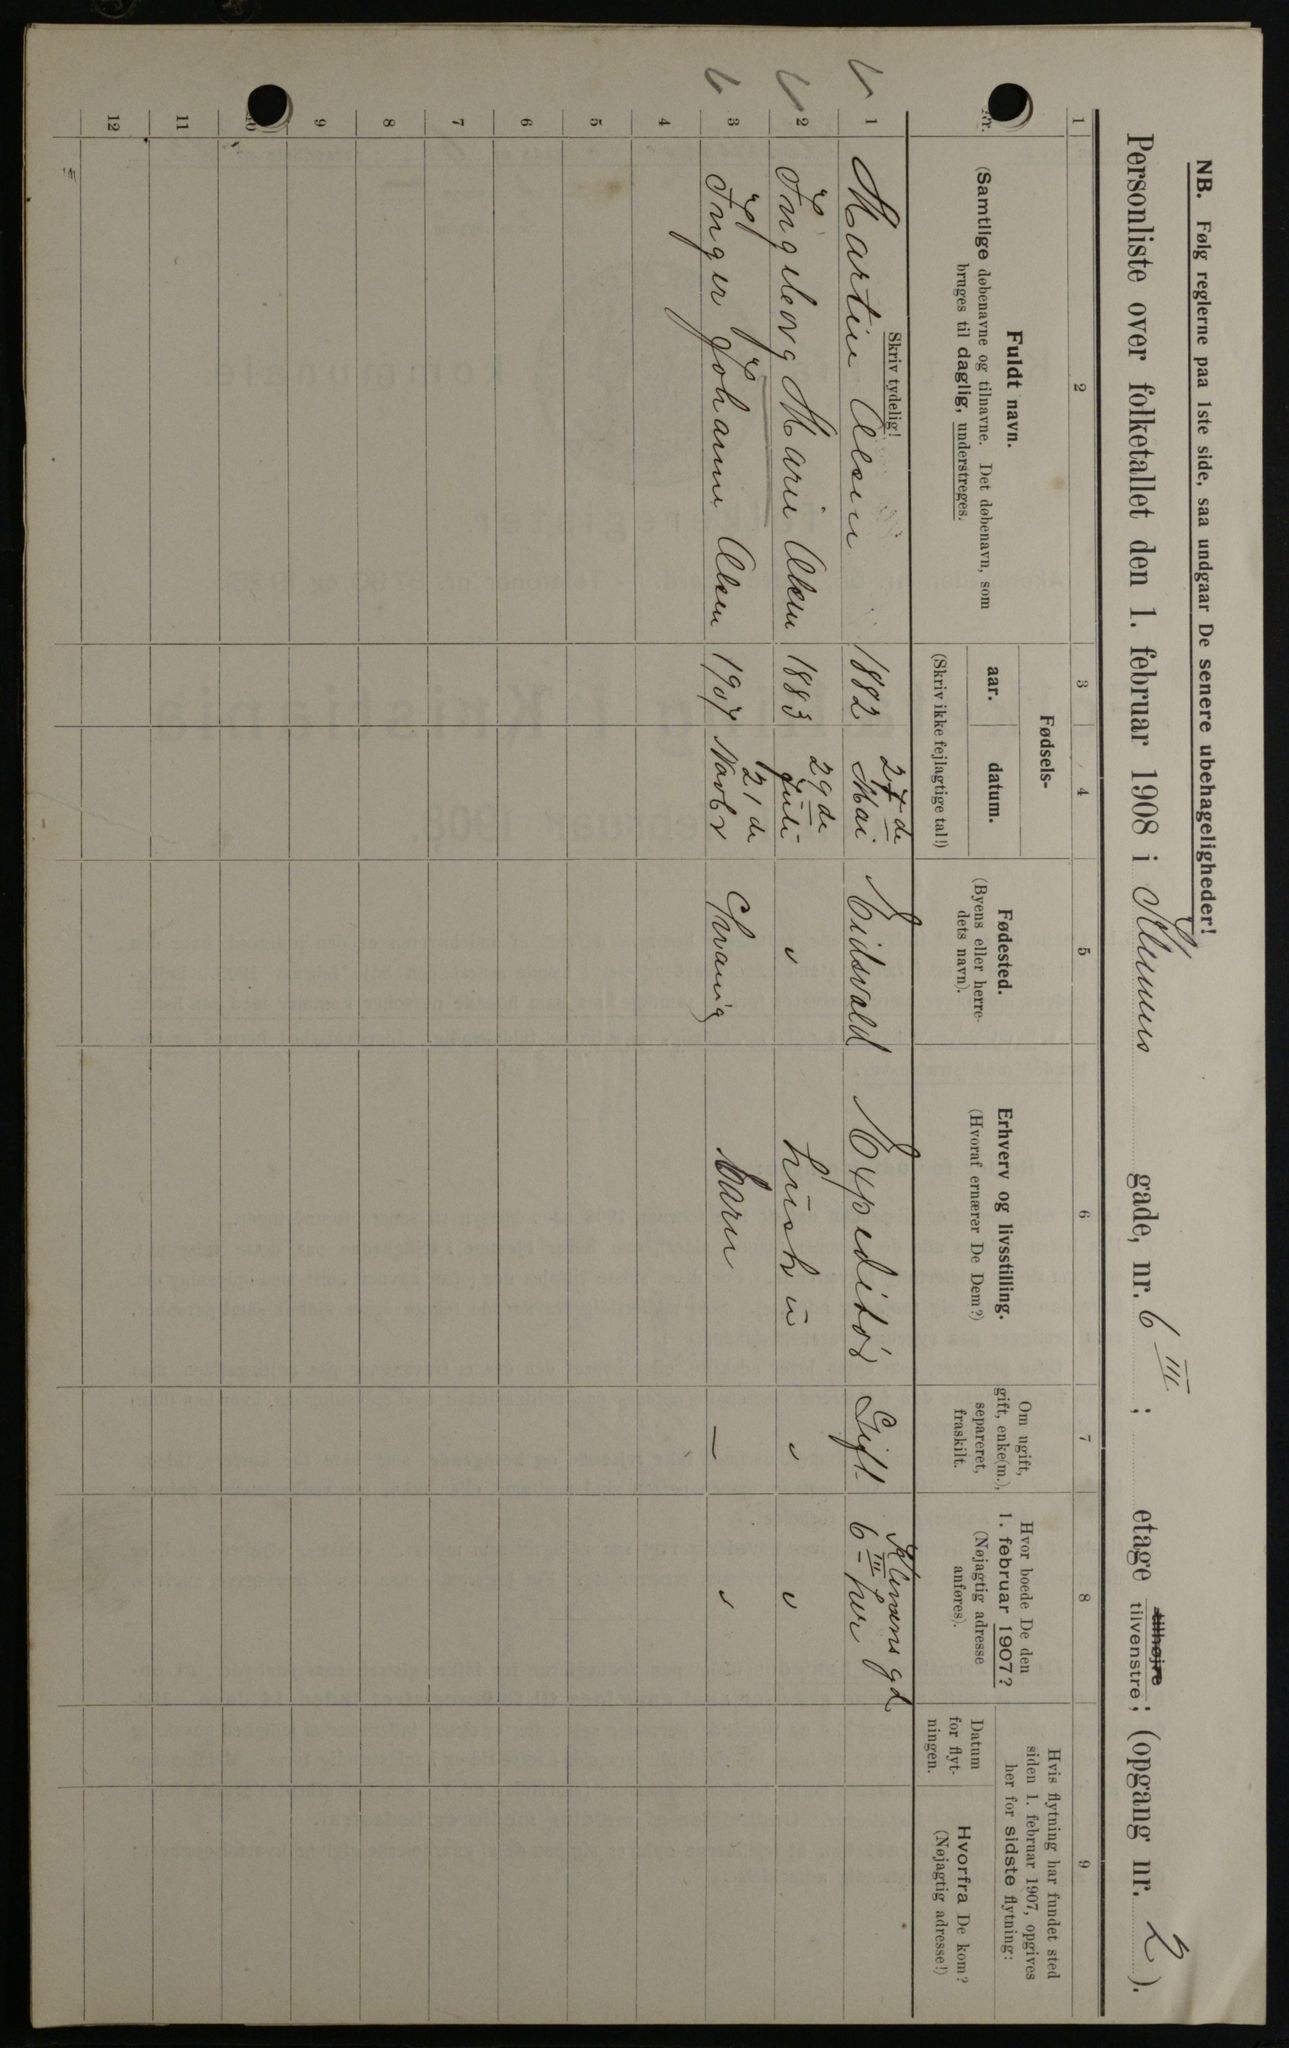 NB. Følg reglerne paa 1ste side, saa undgaar De senere ubehageligheder!
Personliste over folketallet den 1. februar 1908 i Klemens gade, nr. 6 III ; etage tilhøjre tilvenstre; (opgang nr. 2 ).
1 2 3 4 5 6 7 8 9
Nr.
Fuldt navn.
(Samtlige døbenavne og tilnavne. Det døbenavn, som
bruges til daglig, understreges.
Skriv tydelig!
Fødsels-
aar.
datum.
(Skriv ikke fejlagtige tal!)
Fødested.
(Byens eller herre-
dets navn).
Erhverv og livsstilling.
(Hvoraf ernærer De Dem?)
Om ugift,
gift, enke(m.),
separeret,
fraskilt.
Hvor boede De den
1. februar 1907?
(Nøjagtig adresse
anføres).
Hvis flytning har fundet sted
siden 1. februar 1907, opgives
her for sidste flytning:
Datum
for flyt-
ningen.
Hvorfra De kom?
(Nøjagtig adresse!)
1 Martin Olsen 1882 27de Mai Eidsvold Expeditör Gift Klemens gd 6 III hvr
2 Ingeborg Marie Olsen 1883 29de Juli " Hustru " "
3 Inger Johanne Olsen 1907 21de Novbr Chrania Barn — "
4
5
6
7
8
9
10
11
12